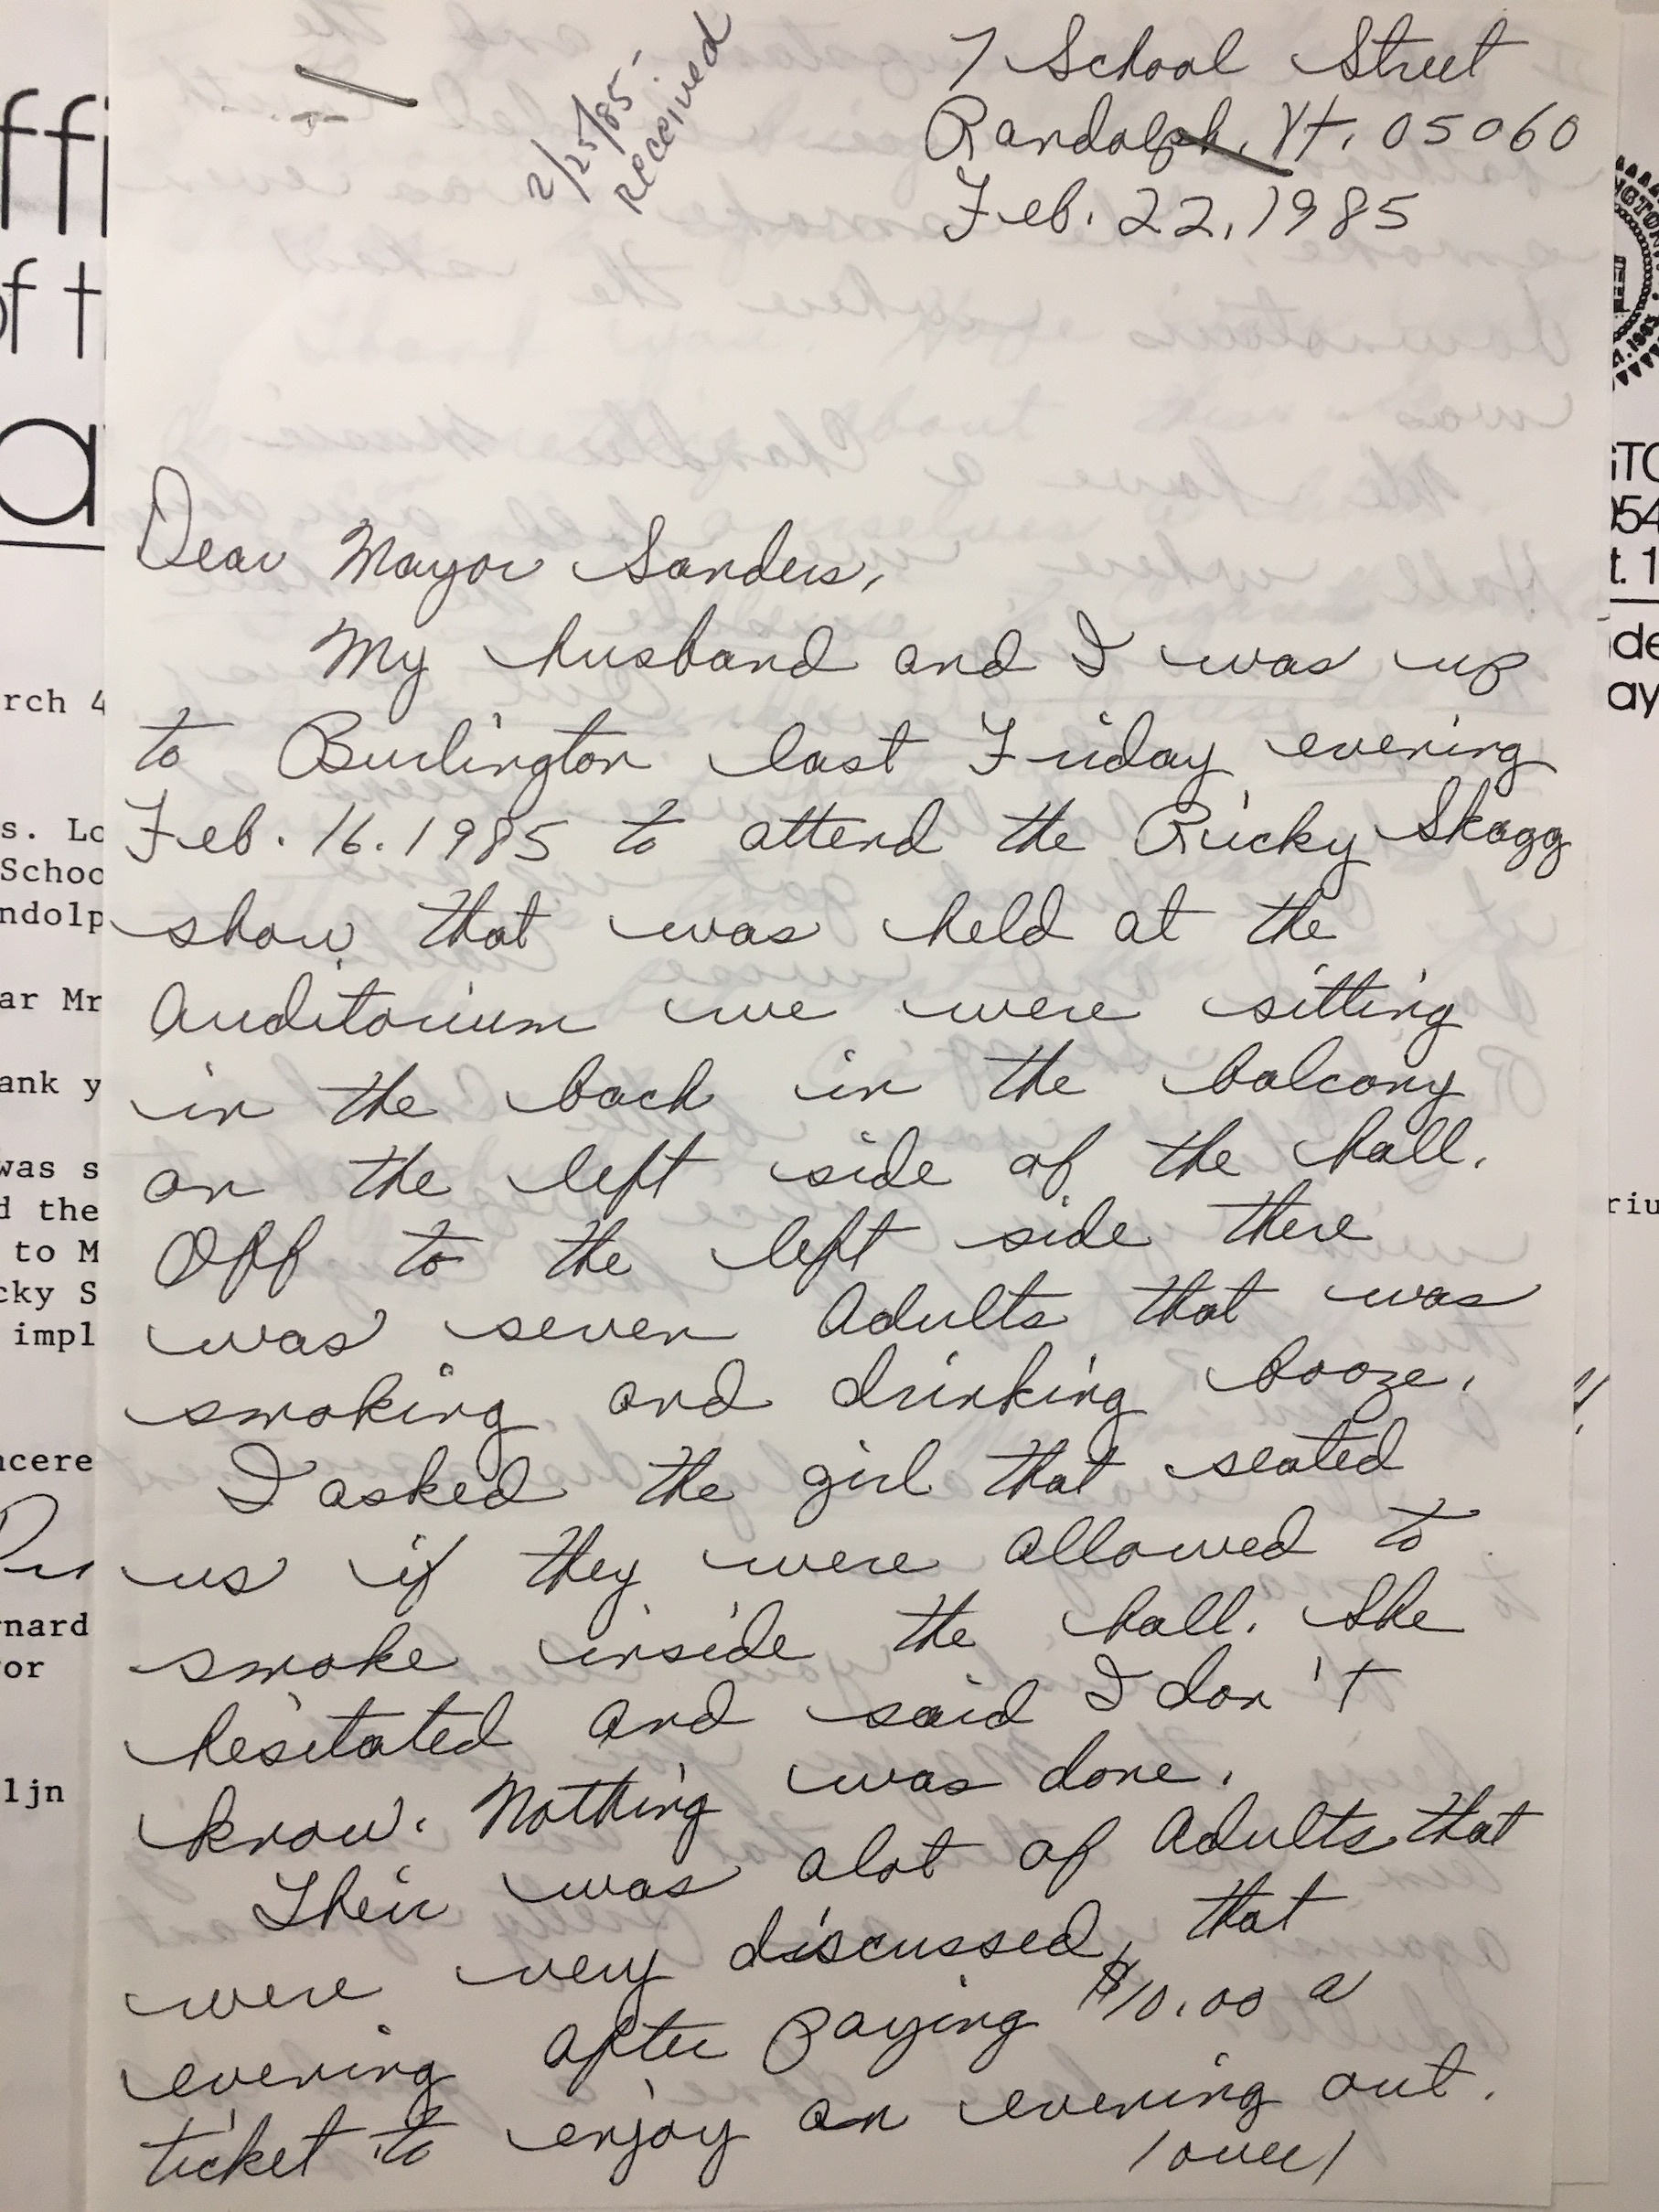 7 School Street
Randolph, Vt. 05060
Feb. 22, 1985
2/25/85-
Received
Dear Mayor Sanders,
My husband and I was up
to Burlington last Friday evening
Feb. 16. 1985 to attend the Ricky Skagg
show, that was held at the
Auditorium we were sitting
in the back in the balcony
on the left side of the hall.
Off to the left side there
was seven Adults that was
smoking and drinking booze.
I asked the girl that seated
us if they were allowed to
smoke inside the hall. She
hesitated and said I don't
know. Nothing was done.
Their was alot of Adults that
were very discussed, that
evening after paying $10.00 a
ticket to enjoy an evening out.
/over/
ffi
of t
a
rch 4
s. Lo
Schoo
ndolp
ar Mr
ank y
was s
d the
to M
cky S
impl
ncere
rnard
yor
ljn
GTON
1865
GTO
054
t. 1
de
ay
riu